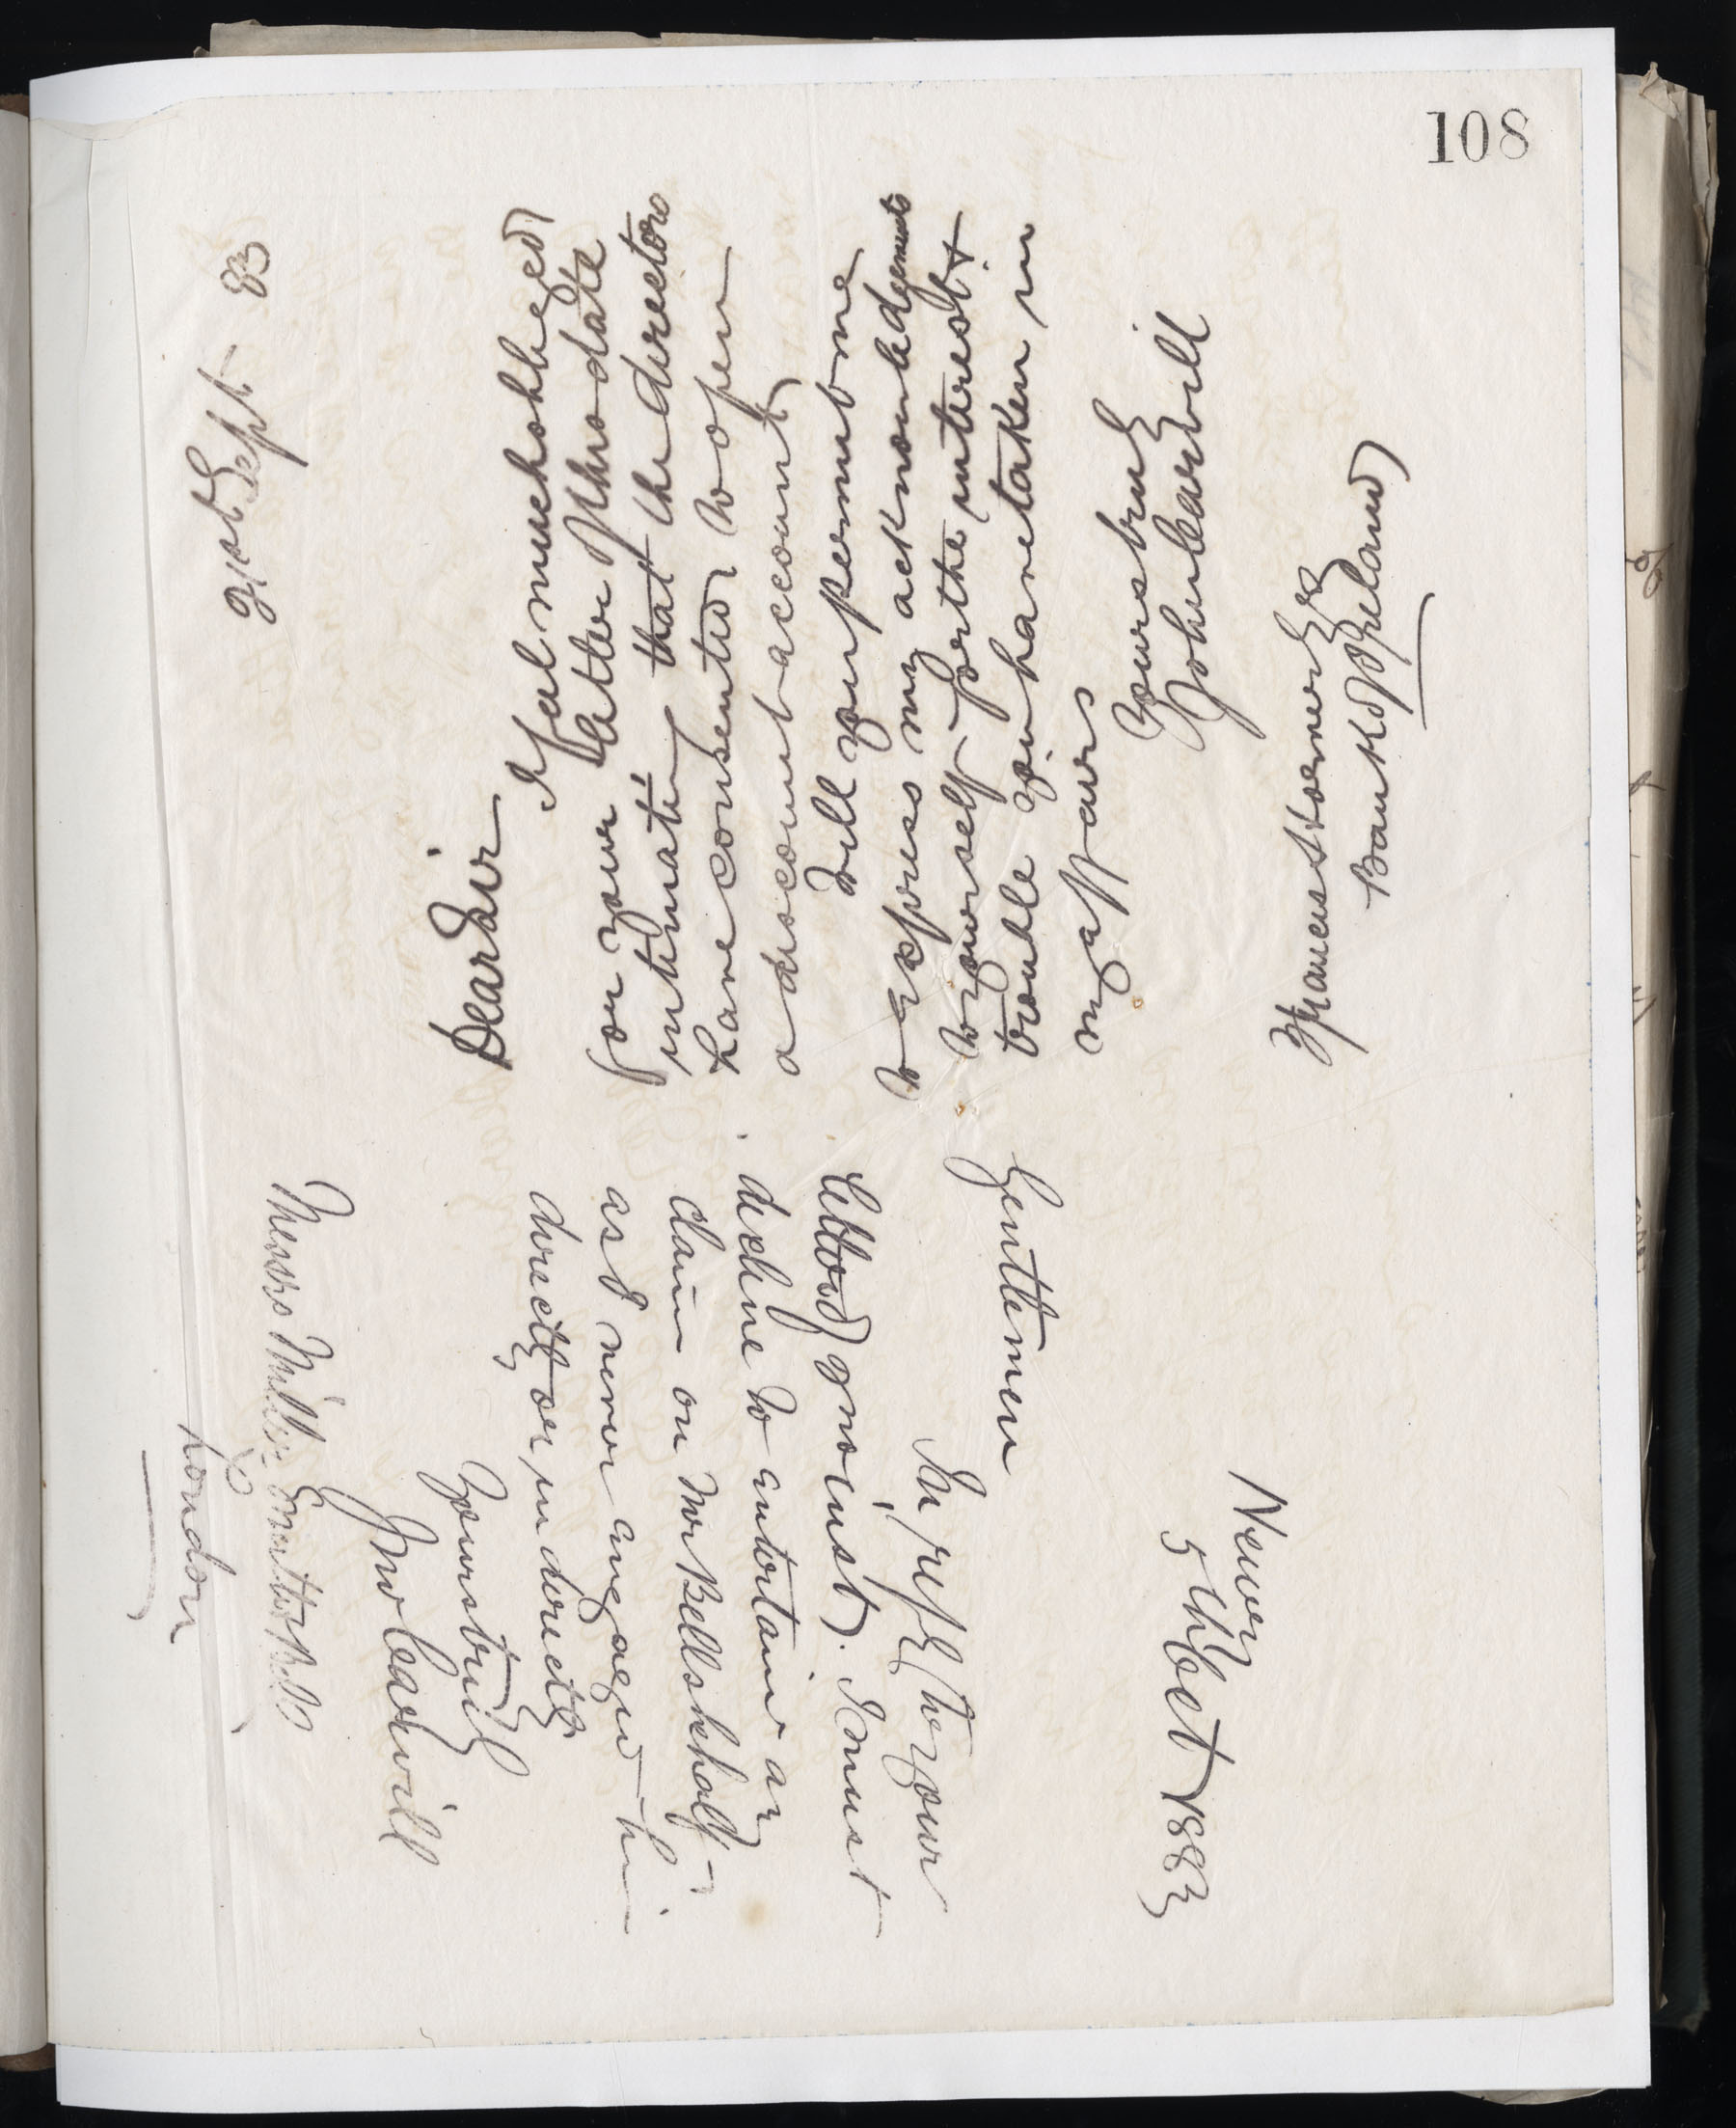 108
21st Sept 83
Dear Sir
I feel much obliged
for your letter of this date
intimating that the directors
have consented to open
a discount account
Will you permit me
to express my acknowledgements
to yourself for the interest &
trouble you have taken in
my affairs
Yours truly
John Cargill
Bank of Ireland
Newry
5th Oct 1883
Gentlemen
In reply to your
letter of inst. I must
decline to entertain any
claim on Mr Bells behalf
as I never engaged him
directly or indirectly
Yours truly
Jno Cargill
Messrs Miller
London